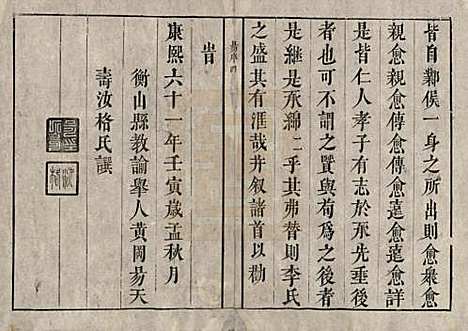 皆自鄴侯一身之所出則愈衆愈
親愈親愈傳愈傳愈遠愈遠愈詳
是皆仁人孝子有志於承先垂後
者也可不謂之賢與苟爲之後者
是繼是承綿綿乎其弗替則李氏
之盛其有涯哉并叙諸首以勸
旹
康熙六十一年壬寅歲孟秋月
衡山縣教諭舉人黃岡易天
壽汝格氏譔